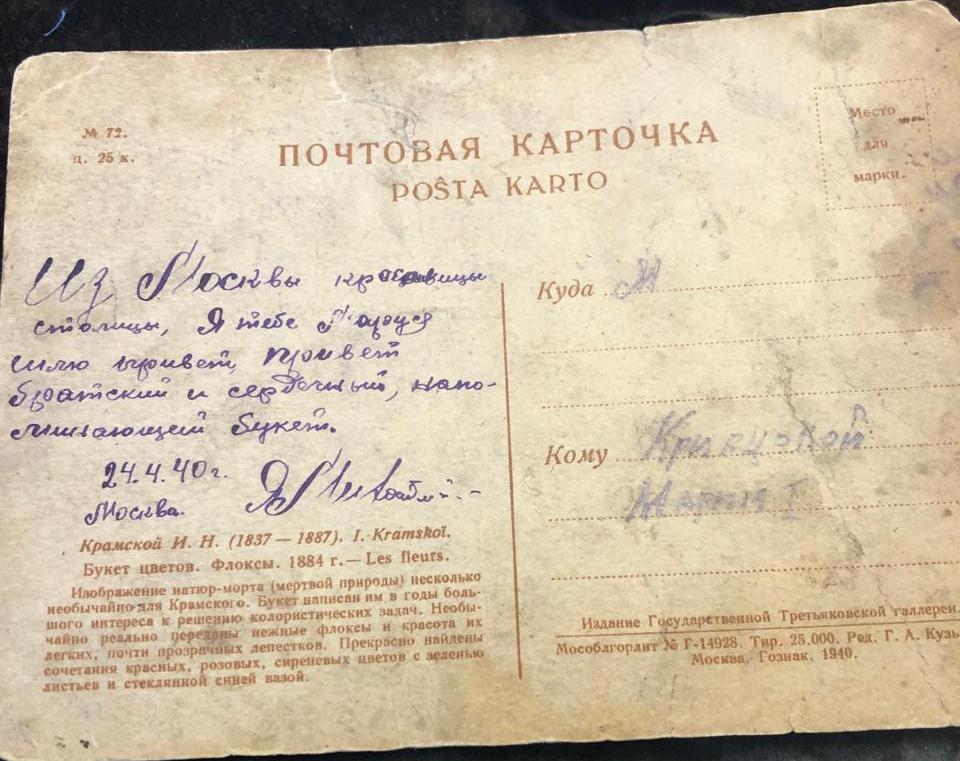 № 72.
ц. 25 к.
ПОЧТОВАЯ КАРТОЧКА
POŜTA KARTO
Место
для
марки.
Из Москвы красавицы
столицы, Я тебе Маруся
шлю привет, привет
братский и сердечный, напо-
минающий букет.
24.4.40 г.
Москва.
Крамской И. Н. (1837 — 1887). I. Kramskoï.
Букет цветов. Флоксы. 1884 г. — Les fleurs.
Изображение натюр-морта (мертвой природы) несколько
необычайно для Крамского. Букет написан им в годы боль-
шого интереса к решению колористических задач. Необы-
чайно реально переданы нежные флоксы и красота их
легких, почти прозрачных лепестков. Прекрасно найдены
сочетания красных, розовых, сиреневых цветов с зеленью
листьев и стеклянной синей вазой.
Куда М
Кому
Марии I
Издание Государственной Третьяковской галлереи.
Мособлгорлит № Г-14928. Тир. 25.000. Ред. Г. А. Кузь
Москва, Гознак. 1940.